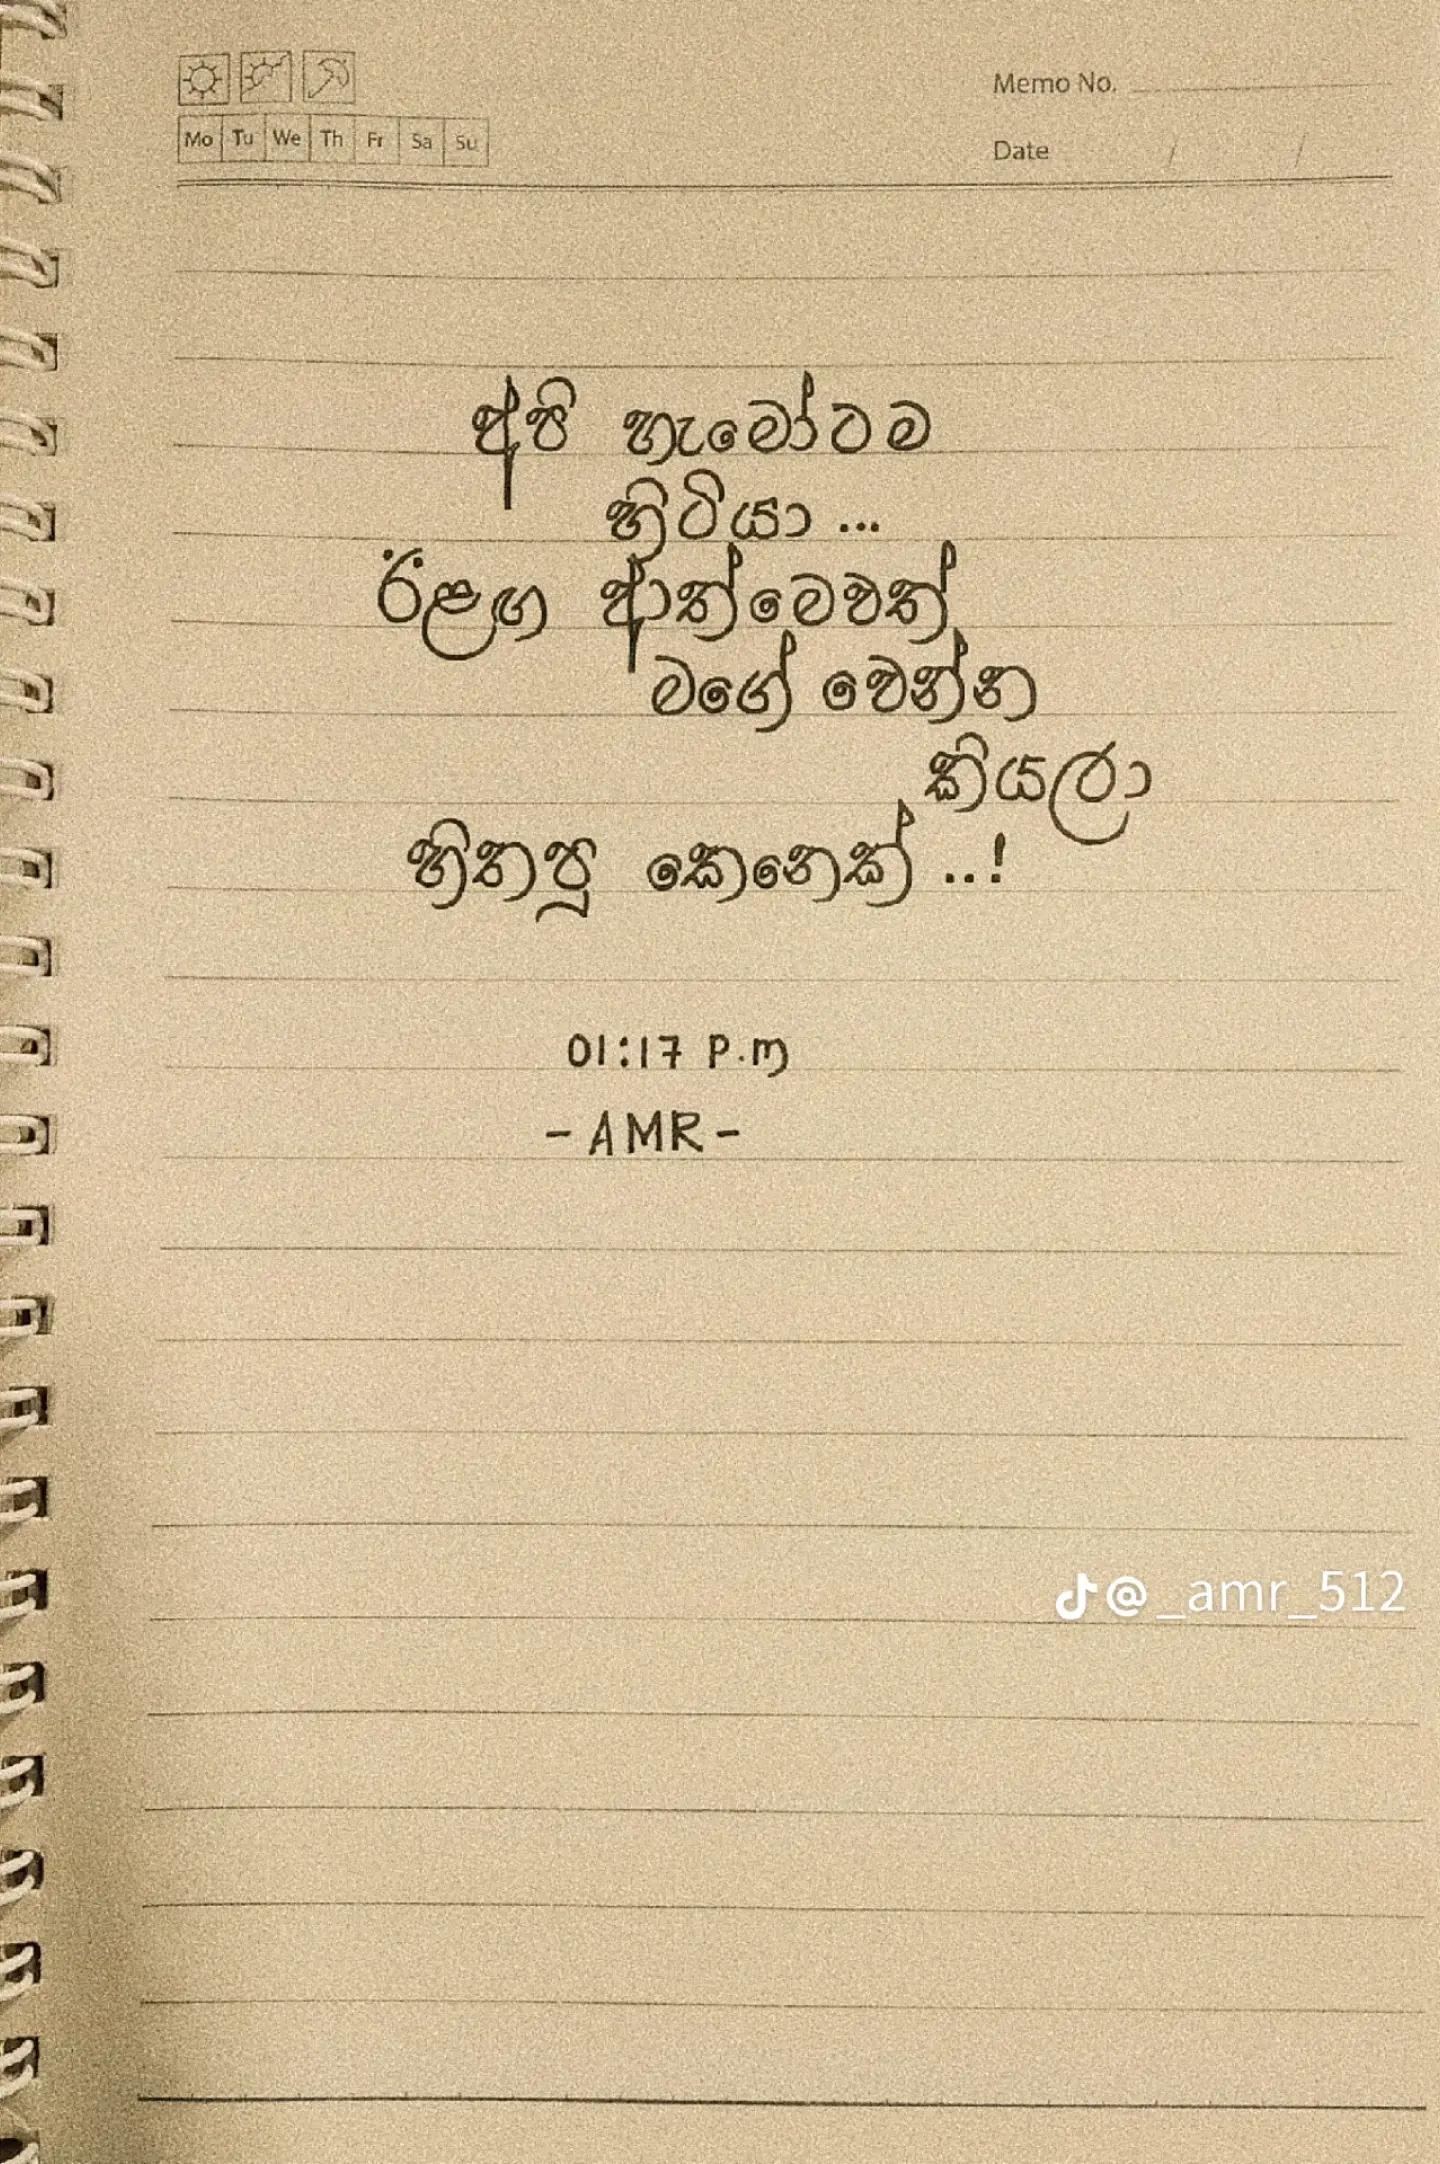 Memo No.
Mo Tu We Th Fr Sa Su
Date / /
අපි හැමෝටම
හිටියා ...
ඊළඟ ආත්මෙවත්
මගේ වෙන්න
කියලා
හිතපු කෙනෙක් ..!
01:17 P.m
- AMR -
@_amr_512